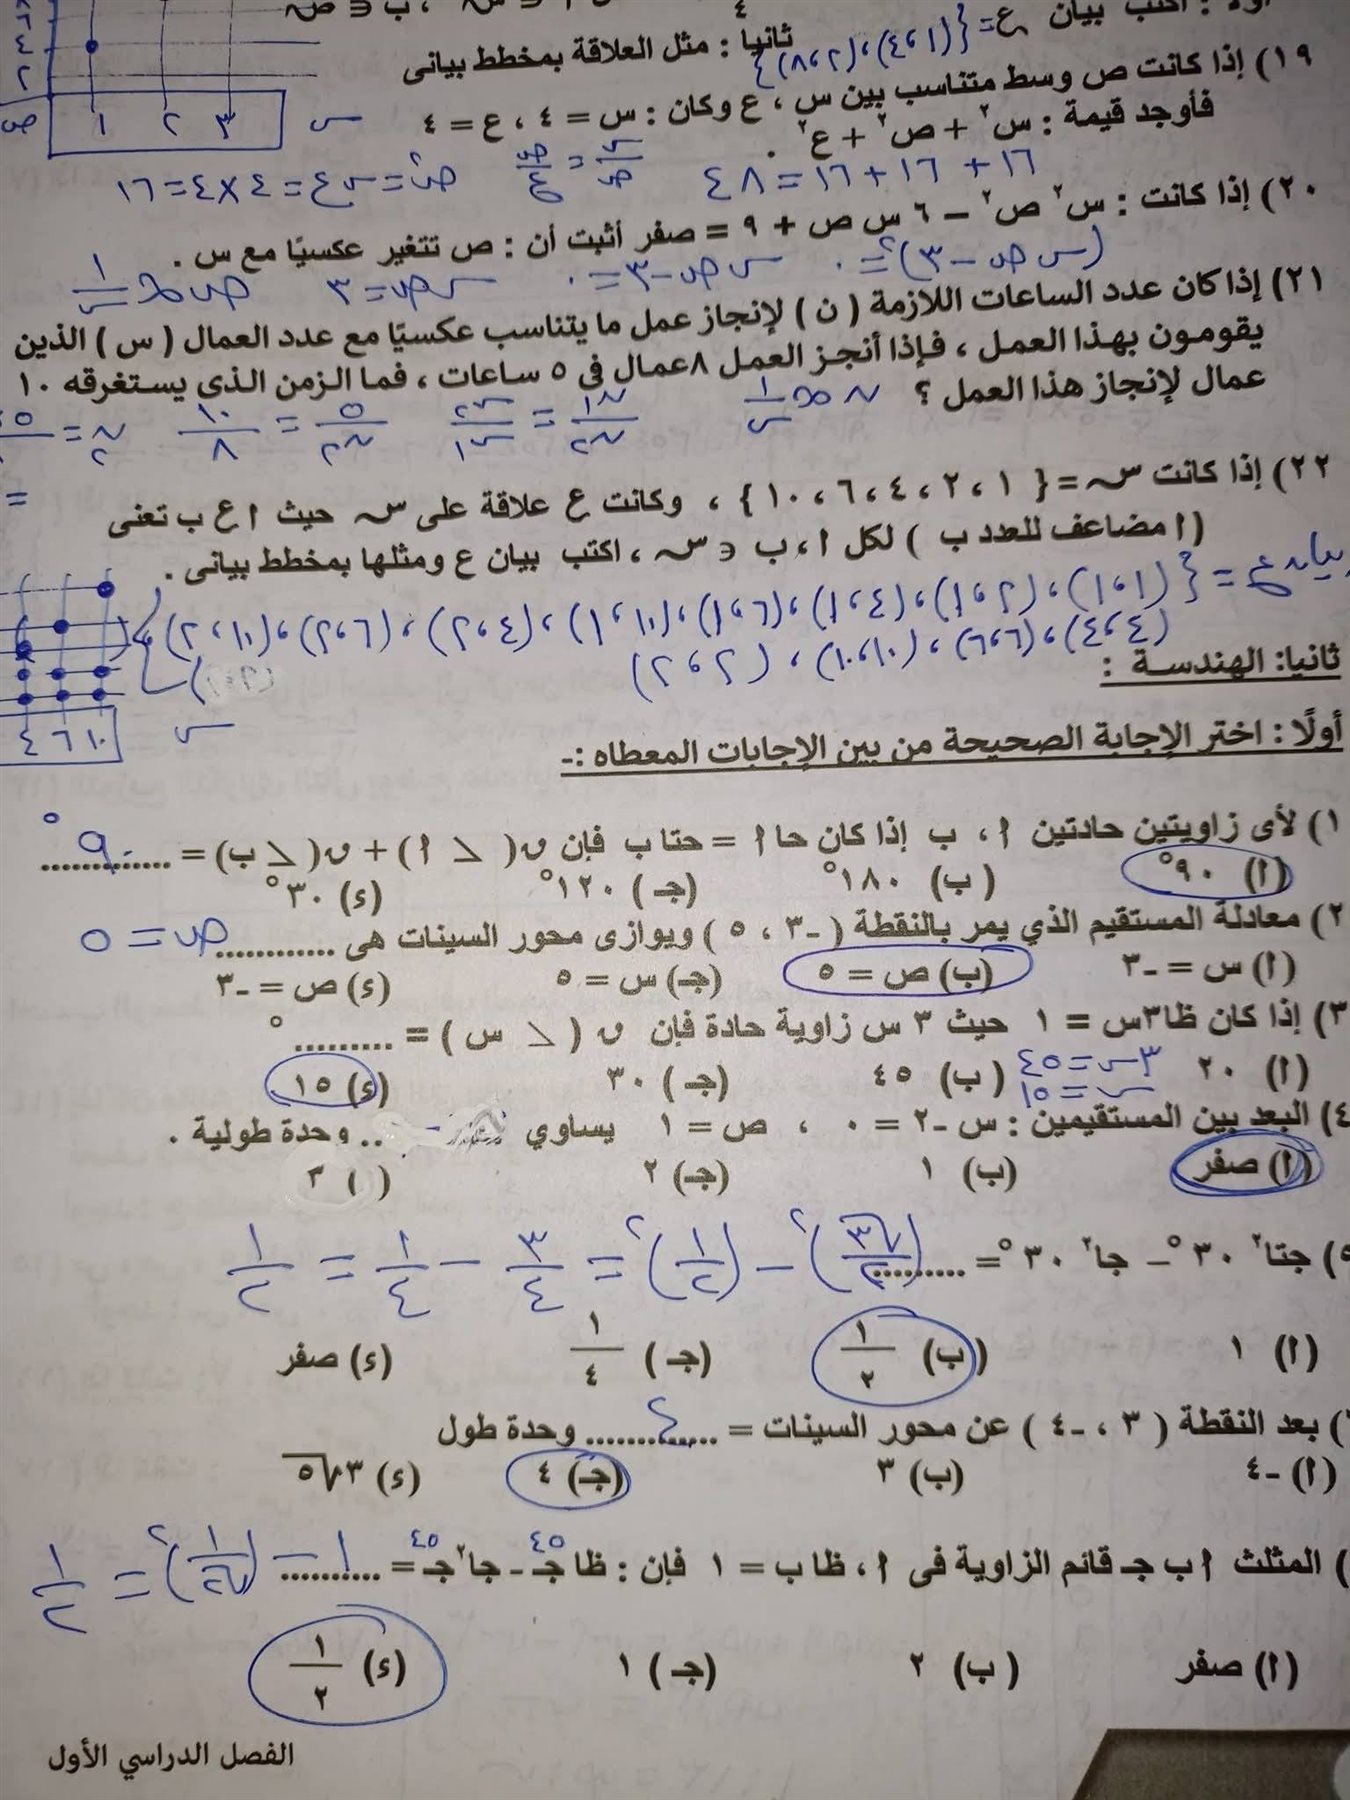 اكتب بيان ع = {(١، ٤)، (٢، ٨)}
ثانيا : مثل العلاقة بمخطط بيانى
١ ٢ ٣ س
١٩) إذا كانت ص وسط متناسب بين س ، ع وكان : س = ٤ ، ع = ٤
فأوجد قيمة : س٢ + ص٢ + ع٢ .
١٦ + ١٦ + ١٦ = ٤٨ س/ص = ص/ع ص٢ = س ع = ٤ × ٤ = ١٦
٢٠) إذا كانت : س٢ ص٢ – ٦ س ص + ٩ = صفر أثبت أن : ص تتغير عكسيًا مع س .
(س ص – ٣)٢ = ٠ س ص – ٣ = ٠ س ص = ٣ ص ∝ ١/س
٢١) إذا كان عدد الساعات اللازمة ( ن ) لإنجاز عمل ما يتناسب عكسيًا مع عدد العمال ( س ) الذين
يقومون بهذا العمل ، فإذا أنجز العمل ٨ عمال فى ٥ ساعات ، فما الزمن الذى يستغرقه ١٠
عمال لإنجاز هذا العمل ؟ ن ∝ ١/س ن١/ن٢ = س٢/س١ ٥/ن٢ = ١٠/٨
٢٢) إذا كانت س = { ١ ، ٢ ، ٤ ، ٦ ، ١٠ } ، وكانت ع علاقة على س حيث أ ع ب تعنى
( أ مضاعف للعدد ب ) لكل أ ، ب ∈ س ، اكتب بيان ع ومثلها بمخطط بيانى .
بيان ع = {(١، ١)، (٢، ١)، (٤، ١)، (٦، ١)، (١٠، ١)، (٤، ٢)، (٦، ٢)، (١٠، ٢)،
(٤، ٤)، (٦، ٦)، (١٠، ١٠)، (٢، ٢)
٤ ٦ ١٠ س
ثانيا: الهندسة :
أولًا : اختر الإجابة الصحيحة من بين الإجابات المعطاه :-
١) لأى زاويتين حادتين أ ، ب إذا كان حا أ = حتا ب فإن ن( ∠ أ ) + ن( ∠ ب) = ............. ٩٠°
(أ) ٩٠° (ب) ١٨٠° (جـ) ١٢٠° (ء) ٣٠°
٢) معادلة المستقيم الذي يمر بالنقطة ( -٣ ، ٥ ) ويوازى محور السينات هى ............ ص = ٥
(أ) س = -٣ (ب) ص = ٥ (جـ) س = ٥ (ء) ص = -٣
٣) إذا كان ظا٣س = ١ حيث ٣ س زاوية حادة فإن ن ( ∠ س ) = ..........°
(أ) ٢٠ (ب) ٤٥ (جـ) ٣٠ (ء) ١٥
٣س = ٤٥
س = ١٥
٤) البعد بين المستقيمين : س -٢ = ٠ ، ص = ١ يساوي .. وحدة طولية .
(أ) صفر (ب) ١ (جـ) ٢ ( ) ٣
٥) جتا٢ ٣٠° – جا٢ ٣٠° = .......... (√٣/٢)٢ – (١/٢)٢ = ٣/٤ – ١/٤ = ١/٢
(أ) ١ (ب) ١/٢ (جـ) ١/٤ (ء) صفر
) بعد النقطة ( ٣ ، -٤ ) عن محور السينات = ............. ٤ وحدة طول
(أ) -٤ (ب) ٣ (جـ) ٤ (ء) ٣√٥
) المثلث أ ب جـ قائم الزاوية فى أ ، ظا ب = ١ فإن : ظا جـ - جا٢ جـ = .......... ١ – (١/√٢)٢ = ١/٢
٤٥ ٤٥
(أ) صفر (ب) ٢ (جـ) ١ (ء) ١/٢
الفصل الدراسي الأول